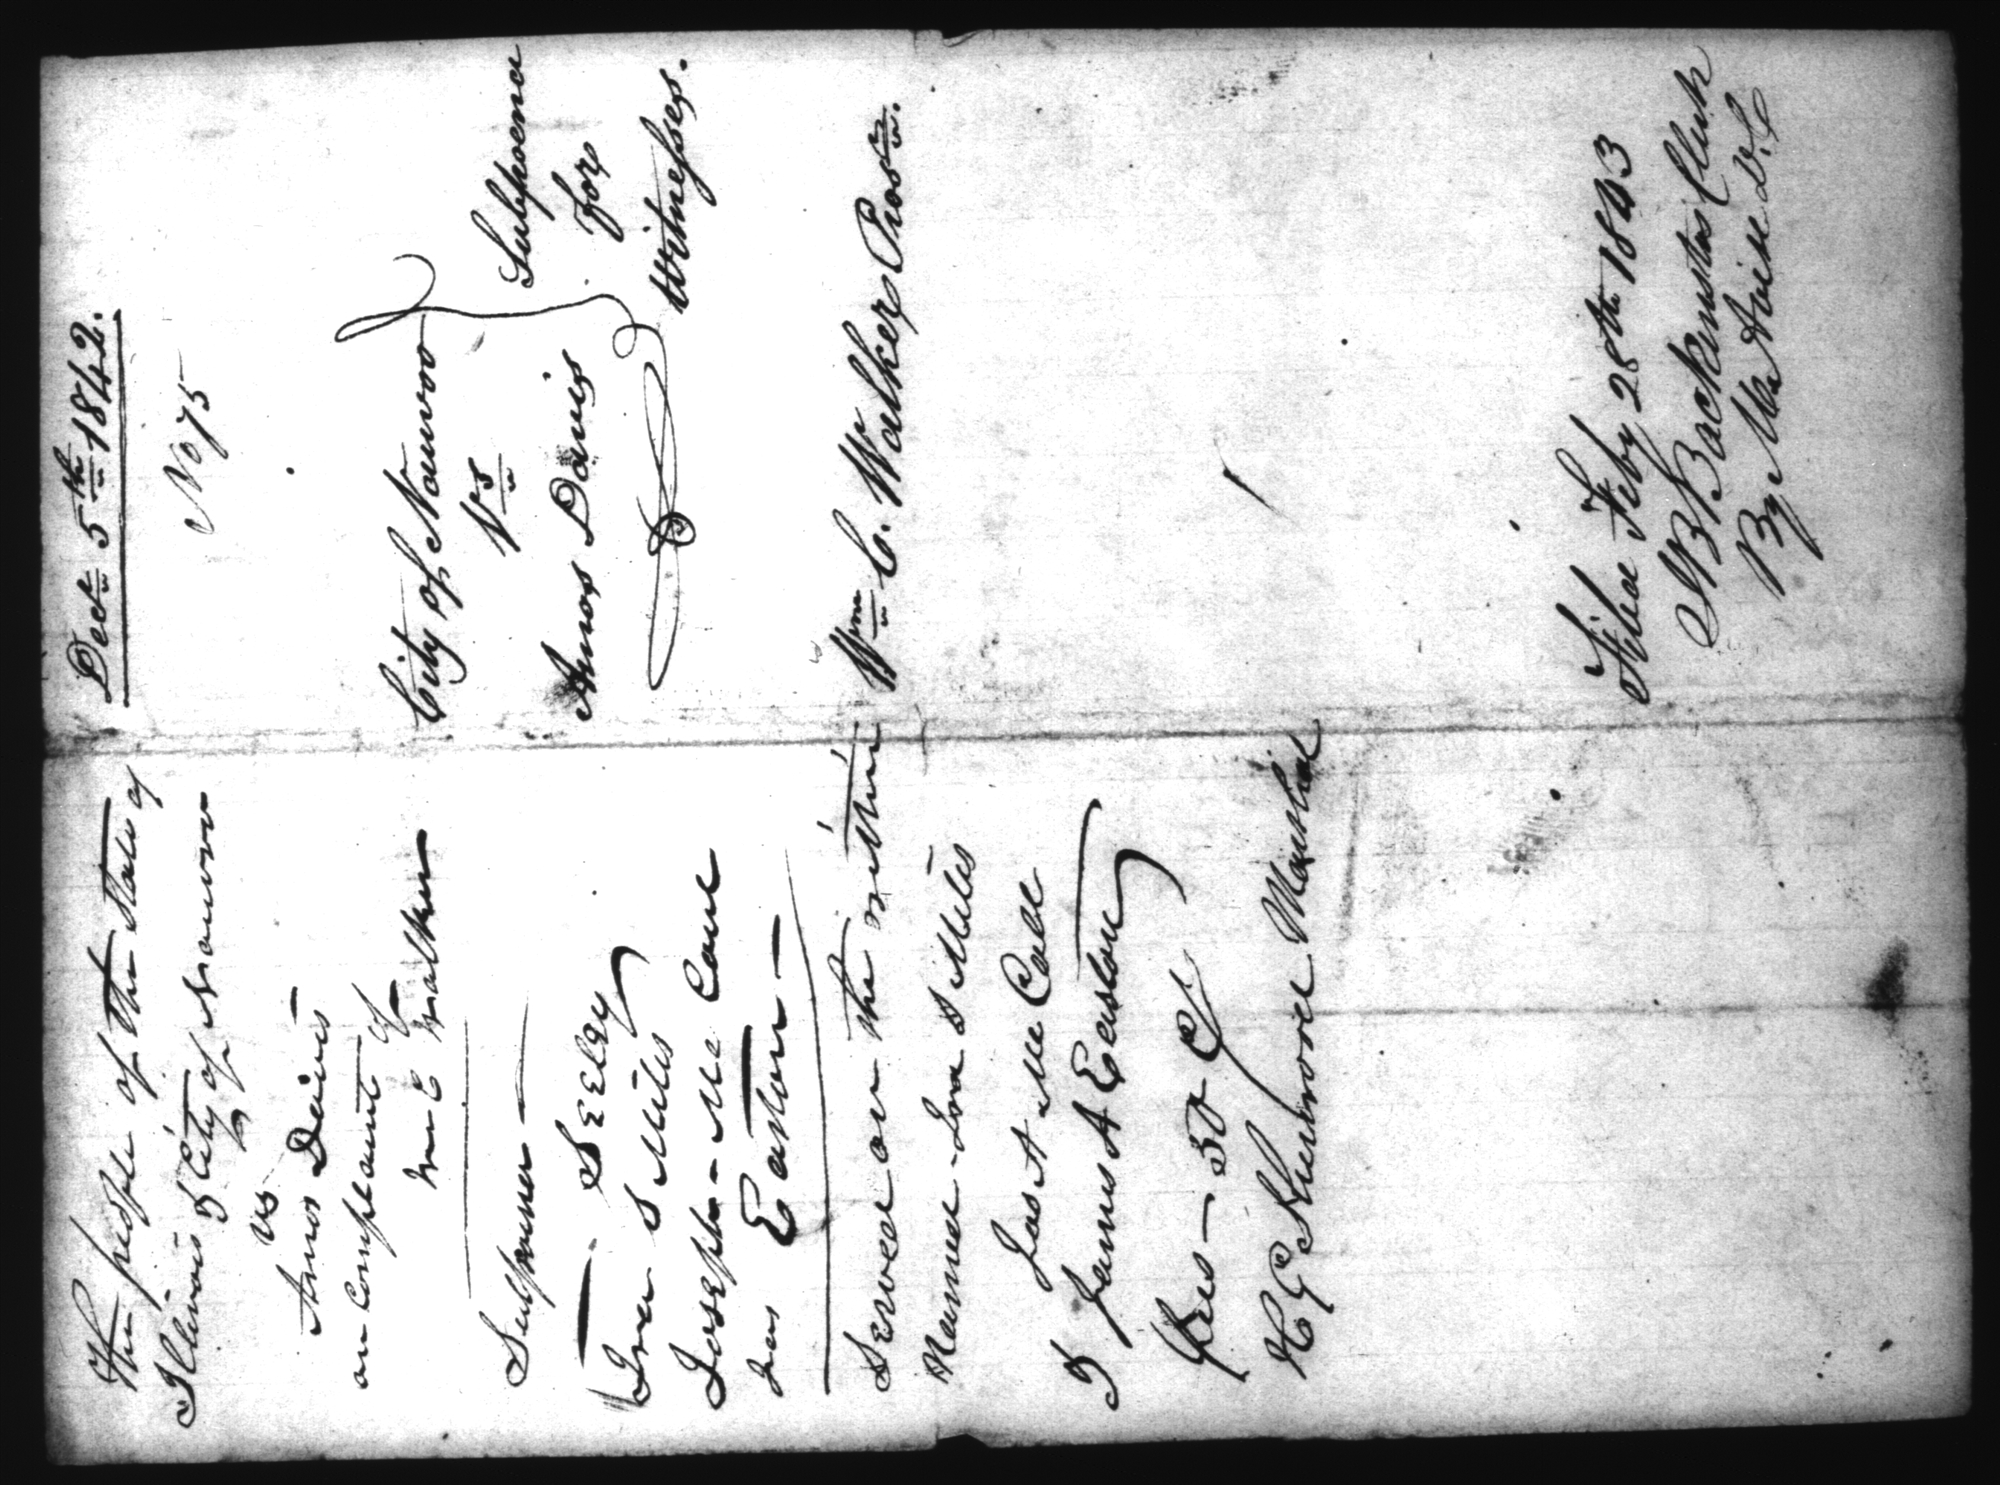 The people of the State of
Illinois & City of Nauvoo
vs
Amos Davis
on complaint of
Wm C Walker
Subpoena
Seely
Ira S Miles
Joseph Mc Coul
Jas Easton
Served on the within
Named Ira S Miles
Jas A Mc Call
& James A Easton
Fees — 50 cts
H G Sherwood Marshal
Dect. 5th 1842.
No 75
City of Nauvoo
Vs
Amos Davis
Subpoena
for
Witnesses.
Wm C. Walker Prosr.
Filed Feby 28th 1843
J B Backenstos Clerk
By D.C